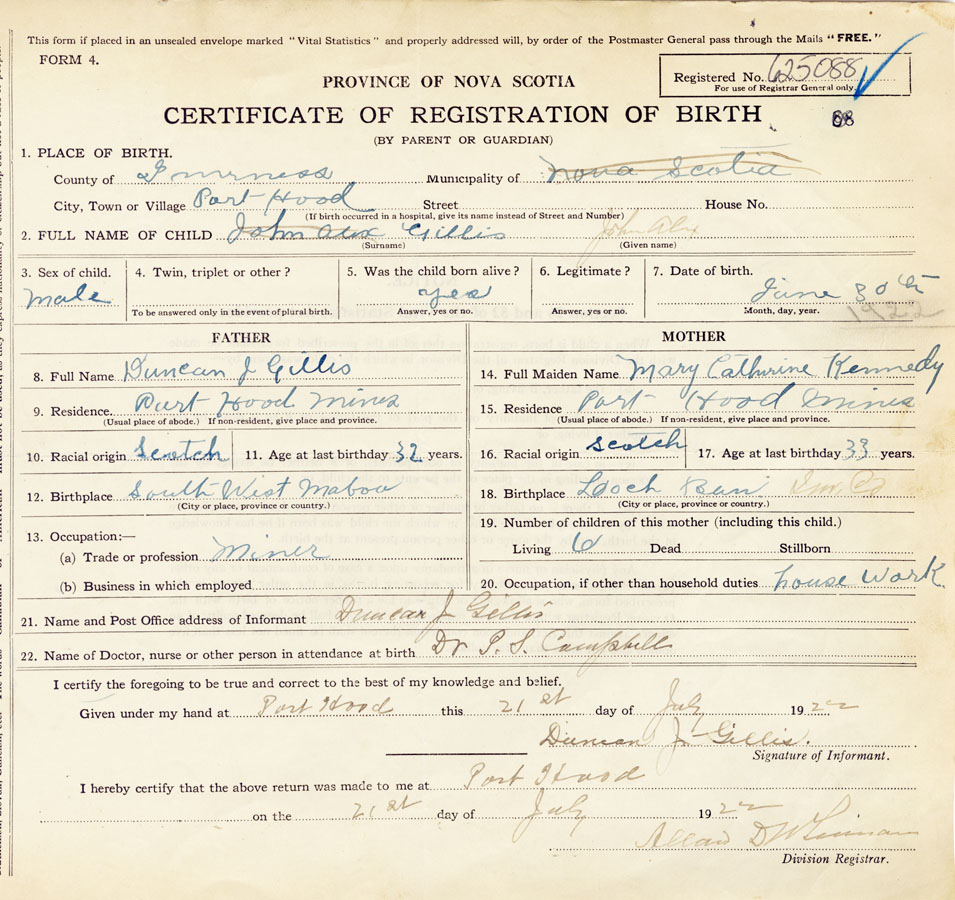 This form if placed in an unsealed envelope marked "Vital Statistics" and properly addressed will, by order of the Postmaster General pass through the Mails "FREE."
FORM 4.
Registered No. 625088
For use of Registrar General only.
PROVINCE OF NOVA SCOTIA
CERTIFICATE OF REGISTRATION OF BIRTH 88
(BY PARENT OR GUARDIAN)
1. PLACE OF BIRTH.
County of Inverness Municipality of Nova Scotia
City, Town or Village Port Hood Street House No.
(If birth occurred in a hospital, give its name instead of Street and Number)
2. FULL NAME OF CHILD John Alex Gillis John Alex
(Surname) (Given name)
3. Sex of child. 4. Twin, triplet or other? 5. Was the child born alive? 6. Legitimate? 7. Date of birth.
Male yes June 30th
1922
To be answered only in the event of plural birth. Answer, yes or no. Answer, yes or no. Month, day, year.
FATHER MOTHER
8. Full Name Duncan J Gillis 14. Full Maiden Name Mary Catherine Kennedy
9. Residence. Port Hood Mines 15. Residence Port Hood Mines
(Usual place of abode.) If non-resident, give place and province. (Usual place of abode.) If non-resident, give place and province.
10. Racial origin Scotch 11. Age at last birthday 32 years. 16. Racial origin Scotch 17. Age at last birthday 33 years.
12. Birthplace South West Mabou 18. Birthplace Loch Ban Inv. Co
(City or place, province or country.) (City or place, province or country.)
19. Number of children of this mother (including this child.)
13. Occupation:—
(a) Trade or profession Miner Living 6 Dead Stillborn
(b) Business in which employed 20. Occupation, if other than household duties house work
21. Name and Post Office address of Informant Duncan J Gillis
22. Name of Doctor, nurse or other person in attendance at birth Dr P. S. Campbell
I certify the foregoing to be true and correct to the best of my knowledge and belief.
Given under my hand at Port Hood this 21st day of July 1922
Duncan J Gillis.
Signature of Informant.
I hereby certify that the above return was made to me at Port Hood
on the 21st day of July 1922
Allan D
Division Registrar.